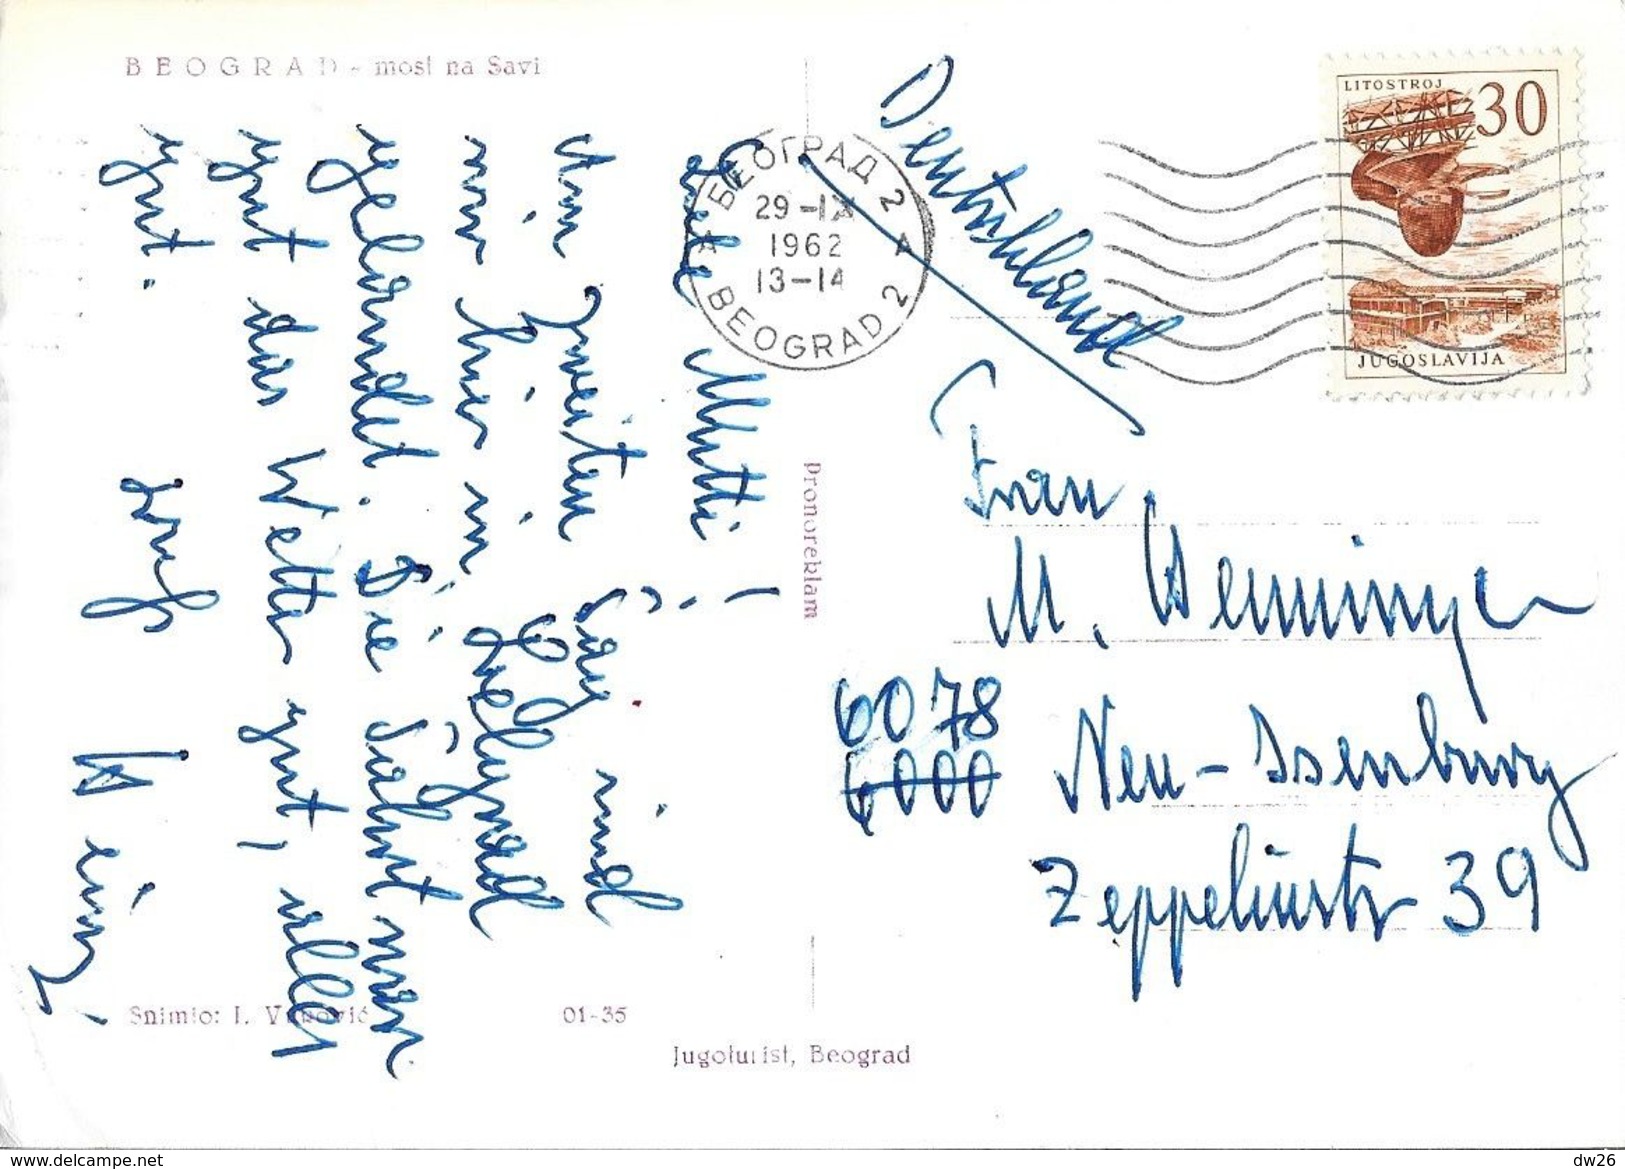 BEOGRAD - most na Savi
Liebe Mutti!
Am zweiten Tag sind
wir hier in Belgrad
gelandet. Die Fahrt war
gut das Wetter gut, alles
gut.
Heinz
Deutschland
БЕОГРАД 2
29-IX
1962
13-14
BEOGRAD 2
LITOSTROJ 30
JUGOSLAVIJA
Frau
M. Wenninger
6078
6000
Neu-Isenburg
Zeppelinstr 39
pronoreklam
Snimio: I. Vubović
01-35
Jugoturist, Beograd
www.delcampe.net
dw26